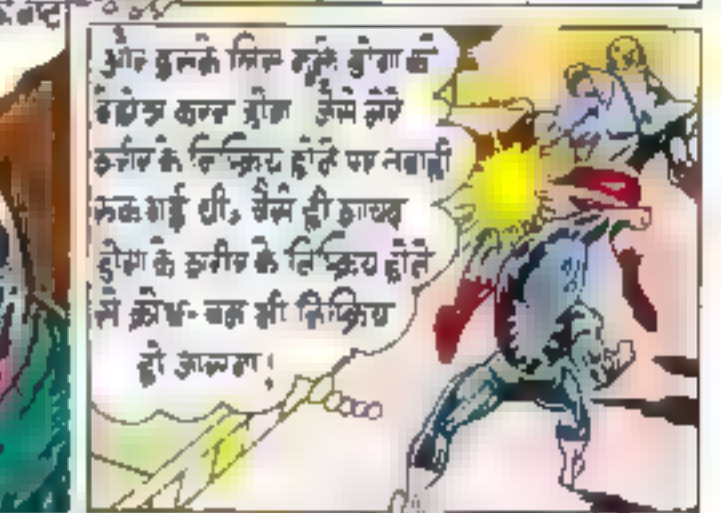 और इसके लिए मुझे डोगा को
बेहोश करना होगा जैसे मेरे
शरीर के निष्क्रिय होने पर तबाही
रुक गई थी, वैसे ही शायद
डोगा के शरीर के निष्क्रिय होने
से क्रोध-चक्र भी निष्क्रिय
हो जाएगा!